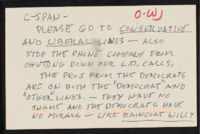 O-WJ
C-SPAN -
PLEASE GO TO CONSERVATIVE
AND LIBERAL LINES - ALSO
STOP THE PHONE COMPANY FROM
SHUTTING DOWN OUR L.D. CALLS,
THE PROS FROM THE DEMOCRATS
ARE ON BOTH THE "DEMOCRAT" AND
"OTHER" LINES. - THEY HAVE NO
SHAME AND THE DEMOCRATS HAVE
NO MORALS - LIKE RAINCOAT WILLY